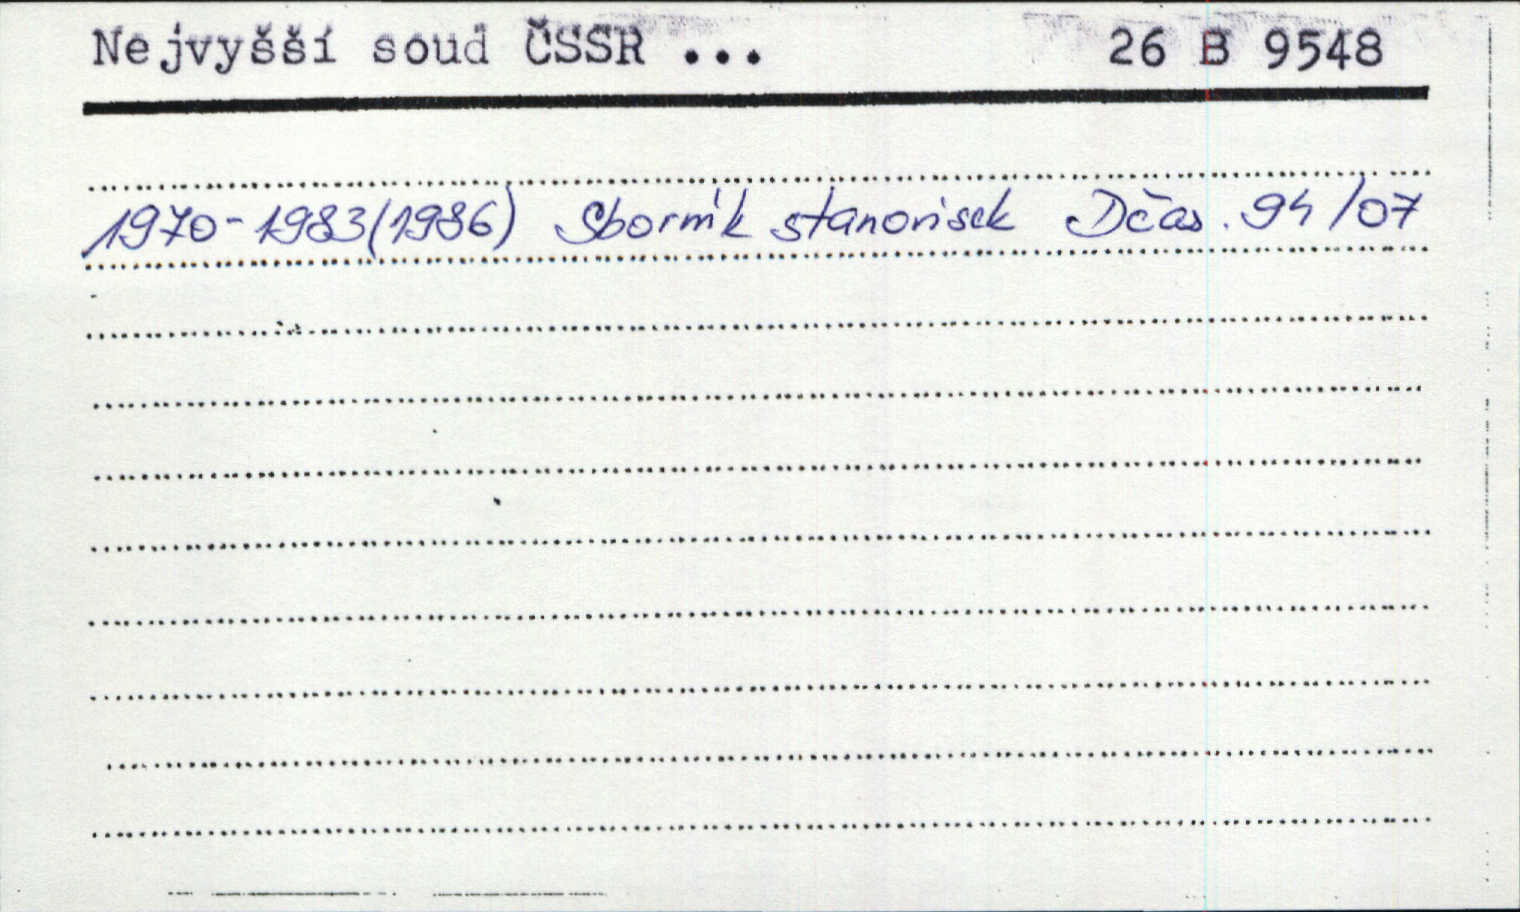 Nejvyšší soud ČSSR ... 26 B 9548
1970-1983(1986) Sborník stanovisek Dčas. 94/07